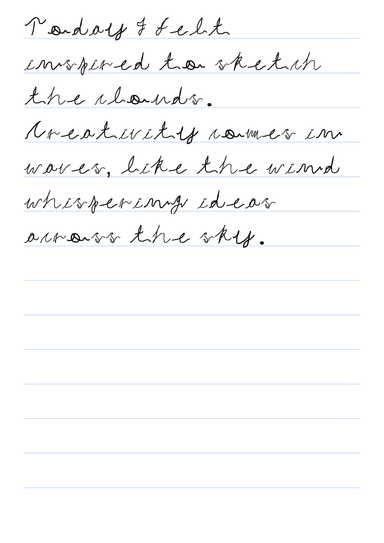 Today I felt
inspired to sketch
the clouds.
Creativity comes in
waves, like the wind
whispering ideas
across the sky.